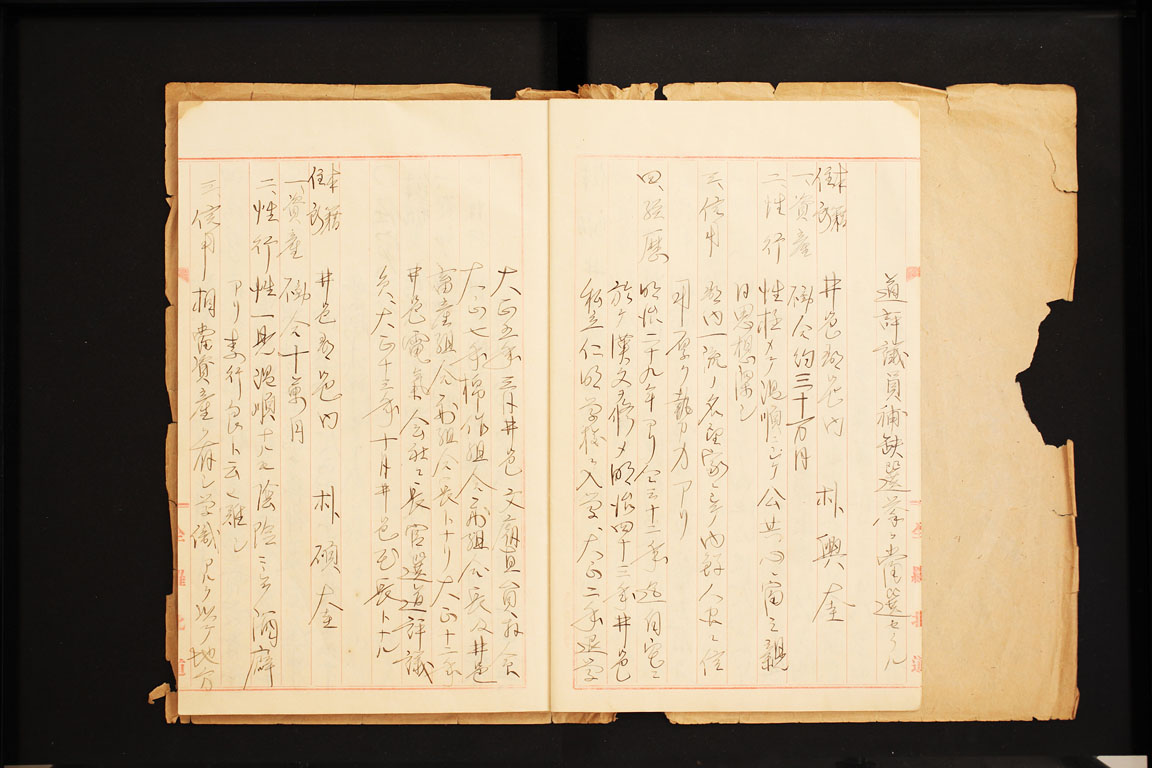 道評議員補缺選挙ニ当選セラル
本籍
住所
井邑郡邑内 朴興奎
一、資産 動合約三十万円
二、性行 性極メテ温順ニシテ公共心ニ富ミ親
日思想深シ
三、信用 郡内一流ノ名望家ニシテ内鮮人民ニ信
用厚ク勢力アリ
四、経歴 明治二十九年ヨリ仝三十二年迄自宅ニ
於テ漢文ヲ修メ明治四十三年井邑
私立仁明学校ニ入学、大正二年退学
大正五年三月井邑文廟直員、
大正七年棉作組合副組合長及井邑
畜産組合副組合長トナリ大正十二年
井邑電気会社々長官選道評議
員、大正十三年十月井邑邑長トナル
本籍
住所
井邑郡邑内 朴碩奎
一、資産 動合十萬円
二、性行 性一見温順ナルモ陰険ニシテ酒癖
アリ素行良シト云ヒ難シ
三、信用 相當資産ヲ有シ学識アルヲ以テ地方
全羅北道